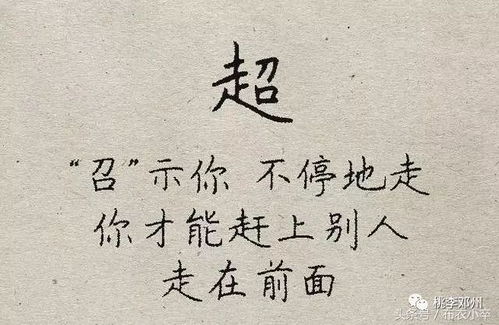 超
“召”示你 不停地走
你才能赶上别人
走在前面
桃李邓州
头条号 / 布衣小卒